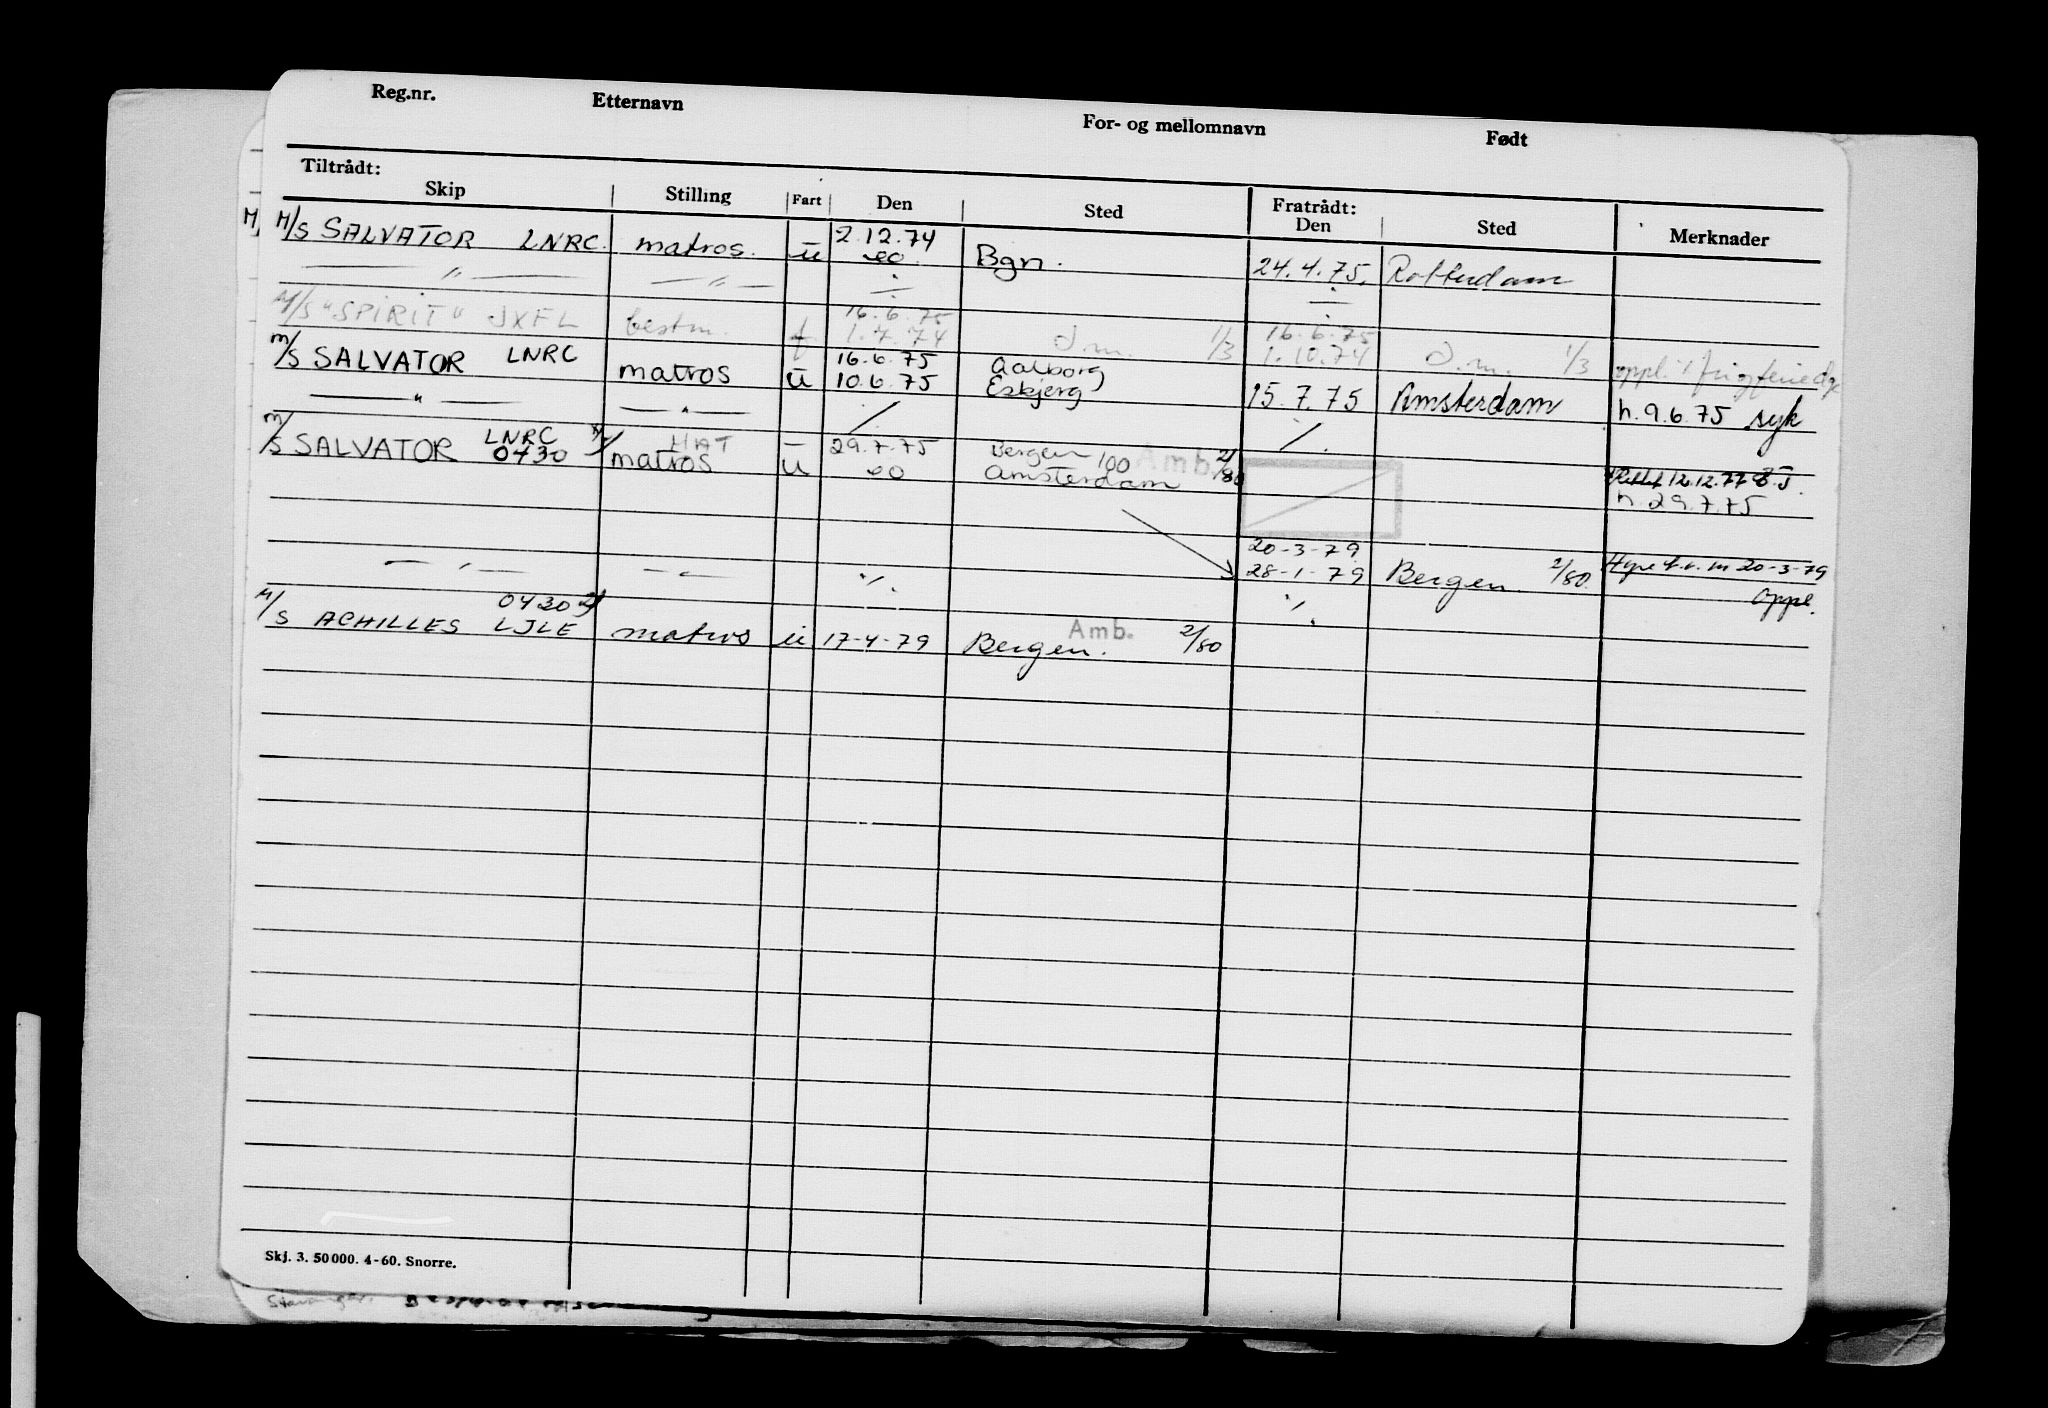 Reg.nr. Etternavn For- og mellomnavn Født
Tiltrådt: Fratrådt:
Skip Stilling Fart Den Sted Den Sted Merknader
M/S SALVATOR LNRC. matros. u 2.12.74 Bgn. 24.4.75. Rotterdam
— " — — " — ÷ ÷
16.6.75 16.6.75
M/S "SPIRIT" JXFL bestm. f 1.7.74 d.m. 1/3 1.10.74 d.m. 1/3 oppl.
16.6.75 Aalborg
M/S SALVATOR LNRC matros u 10.6.75 Esbjerg 15.7.75 Amsterdam h. 9.6.75 syk
— " — — " — ./. ./.
LNRC MAT – 29.7.75 Bergen 100 Amb. 2/80 12.12.77
M/S SALVATOR 0430 matros u Amsterdam h. 29.7.75
20-3-79
28-1-79 Bergen 2/80 20-3-79
— " — — " — ./. ./. oppl.
0430
M/S ACHILLES LJLE matros u 17-4-79 Bergen. Amb. 2/80
Skj. 3. 50 000. 4-60. Snorre.
Stavanger.